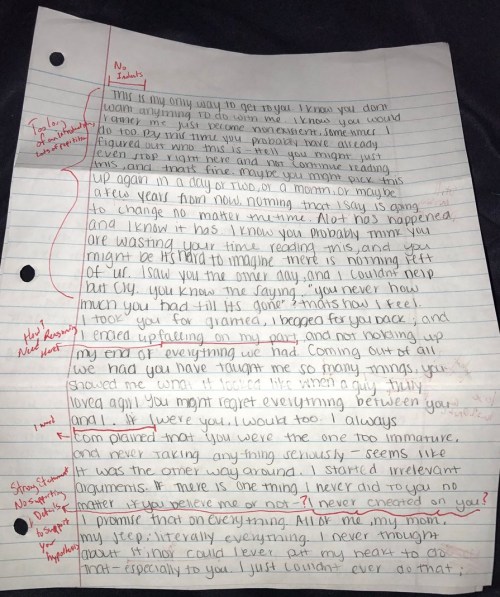 No
Indents
Too long
of an introduction,
lots of repetition
This is my only way to get to you I know you dont
want anything to do with me. I know you would
rather me just become nonexistent, sometimes I
do too. By this time you probably have already
figured out who this is - Hell you might just
even stop right here and not continue reading
this, and that's fine. maybe you might pick this
up again in a day or two, or a month, or maybe
a few years from now, nothing that I say is going
to change no matter the time. Alot has happened,
and I know it has I know you probably think you
are wasting your time reading this, and you
might be. It's hard to imagine there is nothing left
of us. I saw you the other day, and I couldnt help
but cry. you know the saying, "you never how
much you had till its gone" thats how I feel.
I took you for granted, I begged for you back, and
How?
Need Reasoning
Here!
I ended up falling on my part, and not holding up
my end of everything we had. Coming out of all
we had you have taught me so many things, you
showed me what it looked like when a guy truly
loved a girl. You might regret everything between you
and I. If I were you, I would too. I always
complained that you were the one too immature,
and never taking anything seriously - seems like
it was the other way around. I started irrelevant
arguments. If there is one thing I never did to you no
Strong Statement
No supporting
Details
to support
your
hypothesis
matter if you believe me or not - ? I never cheated on you?
I promise that on everything. All of me, my mom,
my jeep; literally everything. I never thought
about it, nor could I ever put my heart to do
that - especially to you. I just couldnt ever do that;